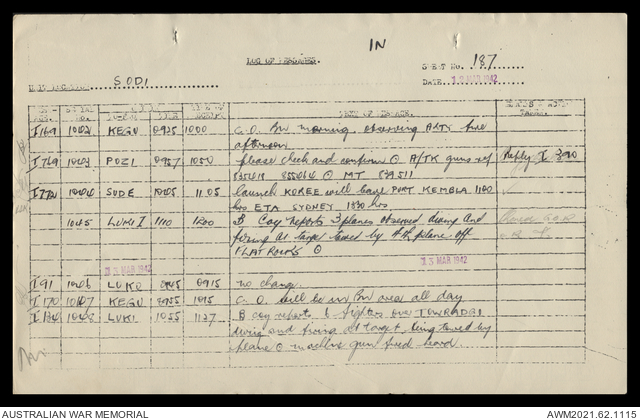 IN
LOG OF MESSAGES.
SHEET No. 187
SODI
DATE 12 MAR 1942
I169 1042 KEGU 0925 1000 C.O. Bn morning observing ARTY fire
afternoon
I769 1043 POZI 0957 1050 please check and confirm O A/TK guns ref Reply I 390
O MT 839511
I772 1044 SUDE 1045 1105 launch KOREE will leave PORT KEMBLA 1100
hrs ETA SYDNEY 1830 hrs
1045 LUKI I 1110 1200 B Coy reports 3 planes observed diving and
firing at target towed by 4th plane off
FLAT ROCKS O
13 MAR 1942
13 MAR 1942
I91 1046 LUKO 0845 0915 no change
I170 1047 KEGU 0955 1015 C.O. will be in Bn area all day
I134 1048 LUKI 1055 1127 B coy reports 6 fighters over TOWRADGI
diving and firing at target, being towed by
plane O machine gun fired heard.
AUSTRALIAN WAR MEMORIAL
AWM2021.62.1115